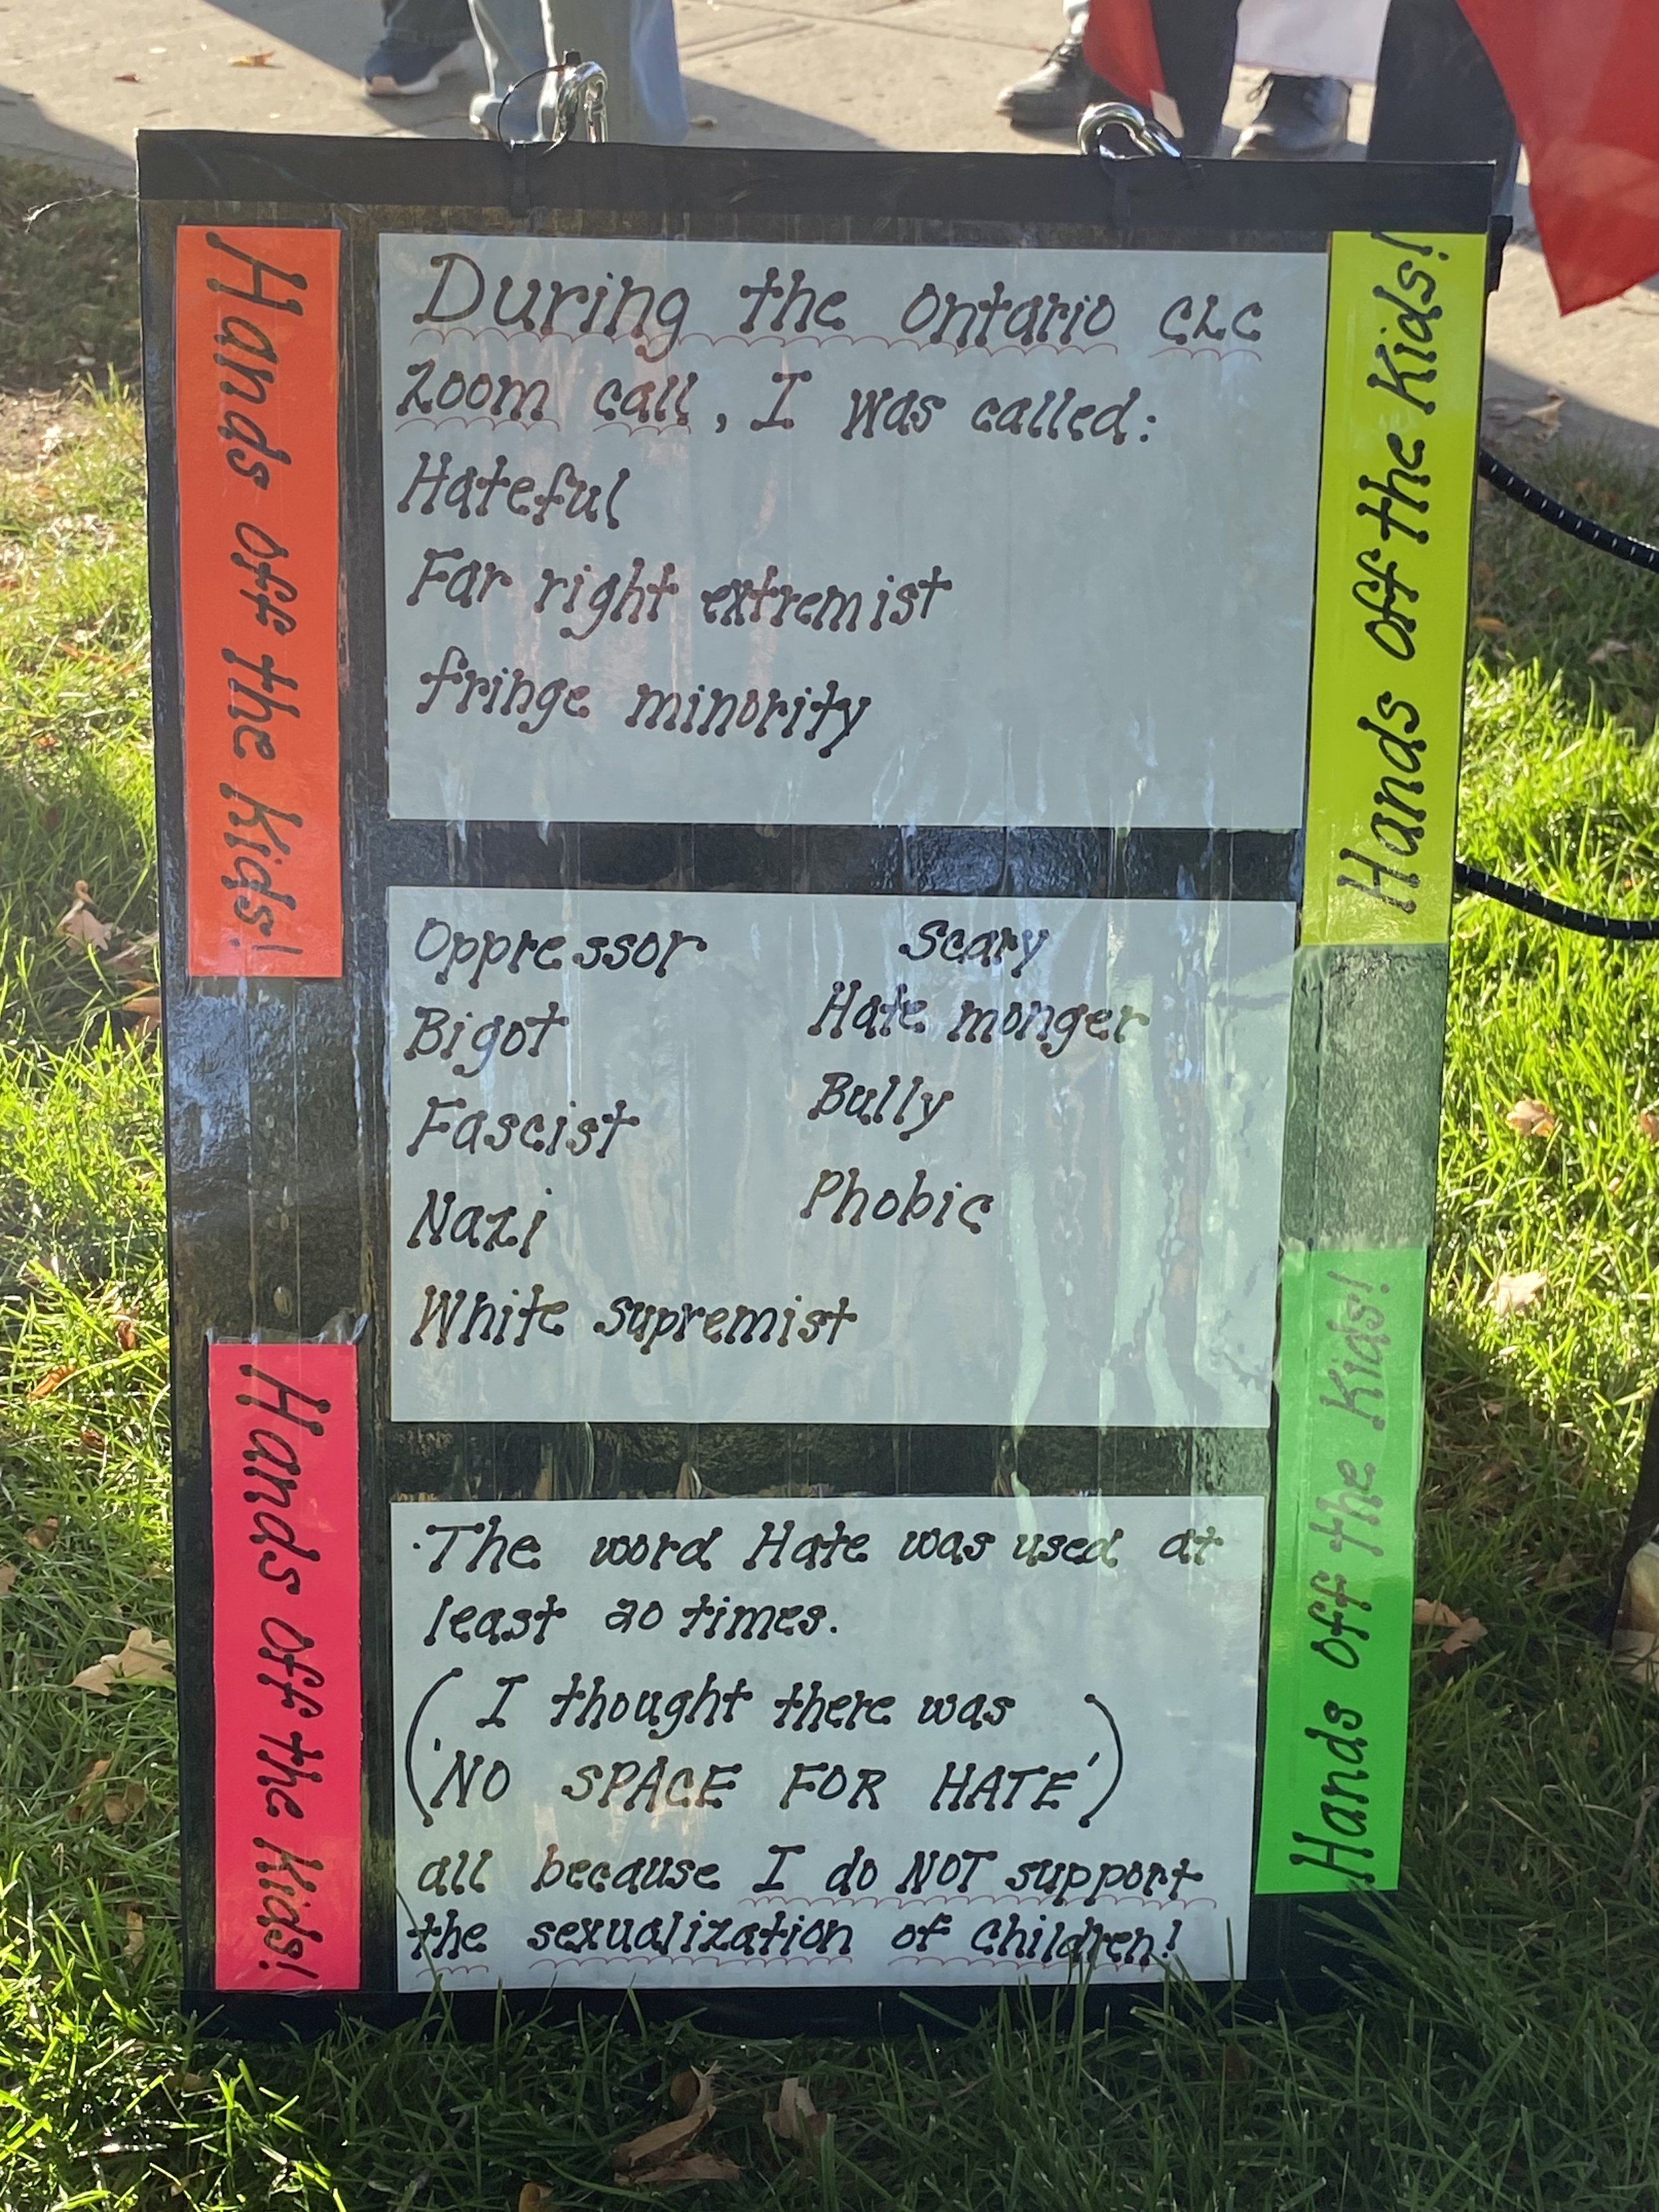 Hands off the Kids!
During the Ontario CLC
Zoom call, I was called:
Hateful
Far right extremist
fringe minority
Hands off the Kids!
Oppressor
Bigot
Fascist
Nazi
White supremist
Scary
Hate monger
Bully
Phobic
Hands off the Kids!
The word Hate was used at
least 20 times.
( I thought there was
'NO SPACE FOR HATE')
all because I do NOT support
the sexualization of children!
Hands off the Kids!